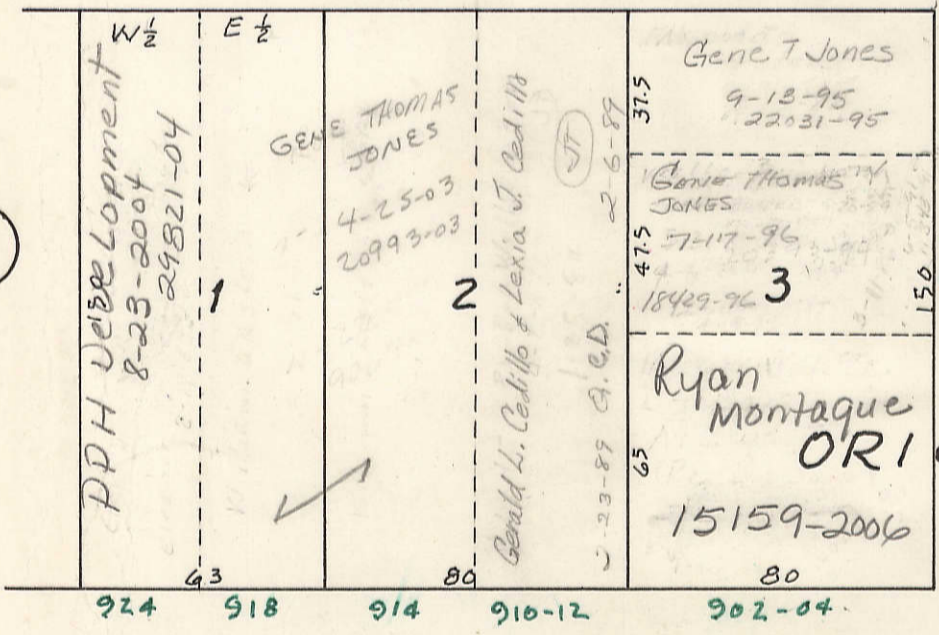 W½
E½
PPH Development
8-23-2004
29821-04
1
GENE THOMAS
JONES
4-25-03
20993-03
"
2
Gerald L. Cedillo & Lexia J. Cedillo
JT
2-23-89 Q.C.D. 2-6-89
"
Gene T Jones
9-13-95
22031-95
37.5
GENE THOMAS
JONES
7-17-96
18429-96
3
47.5
150
Ryan
Montague
OR1
15159-2006
65
63
80
80
924
918
914
910-12
902-04